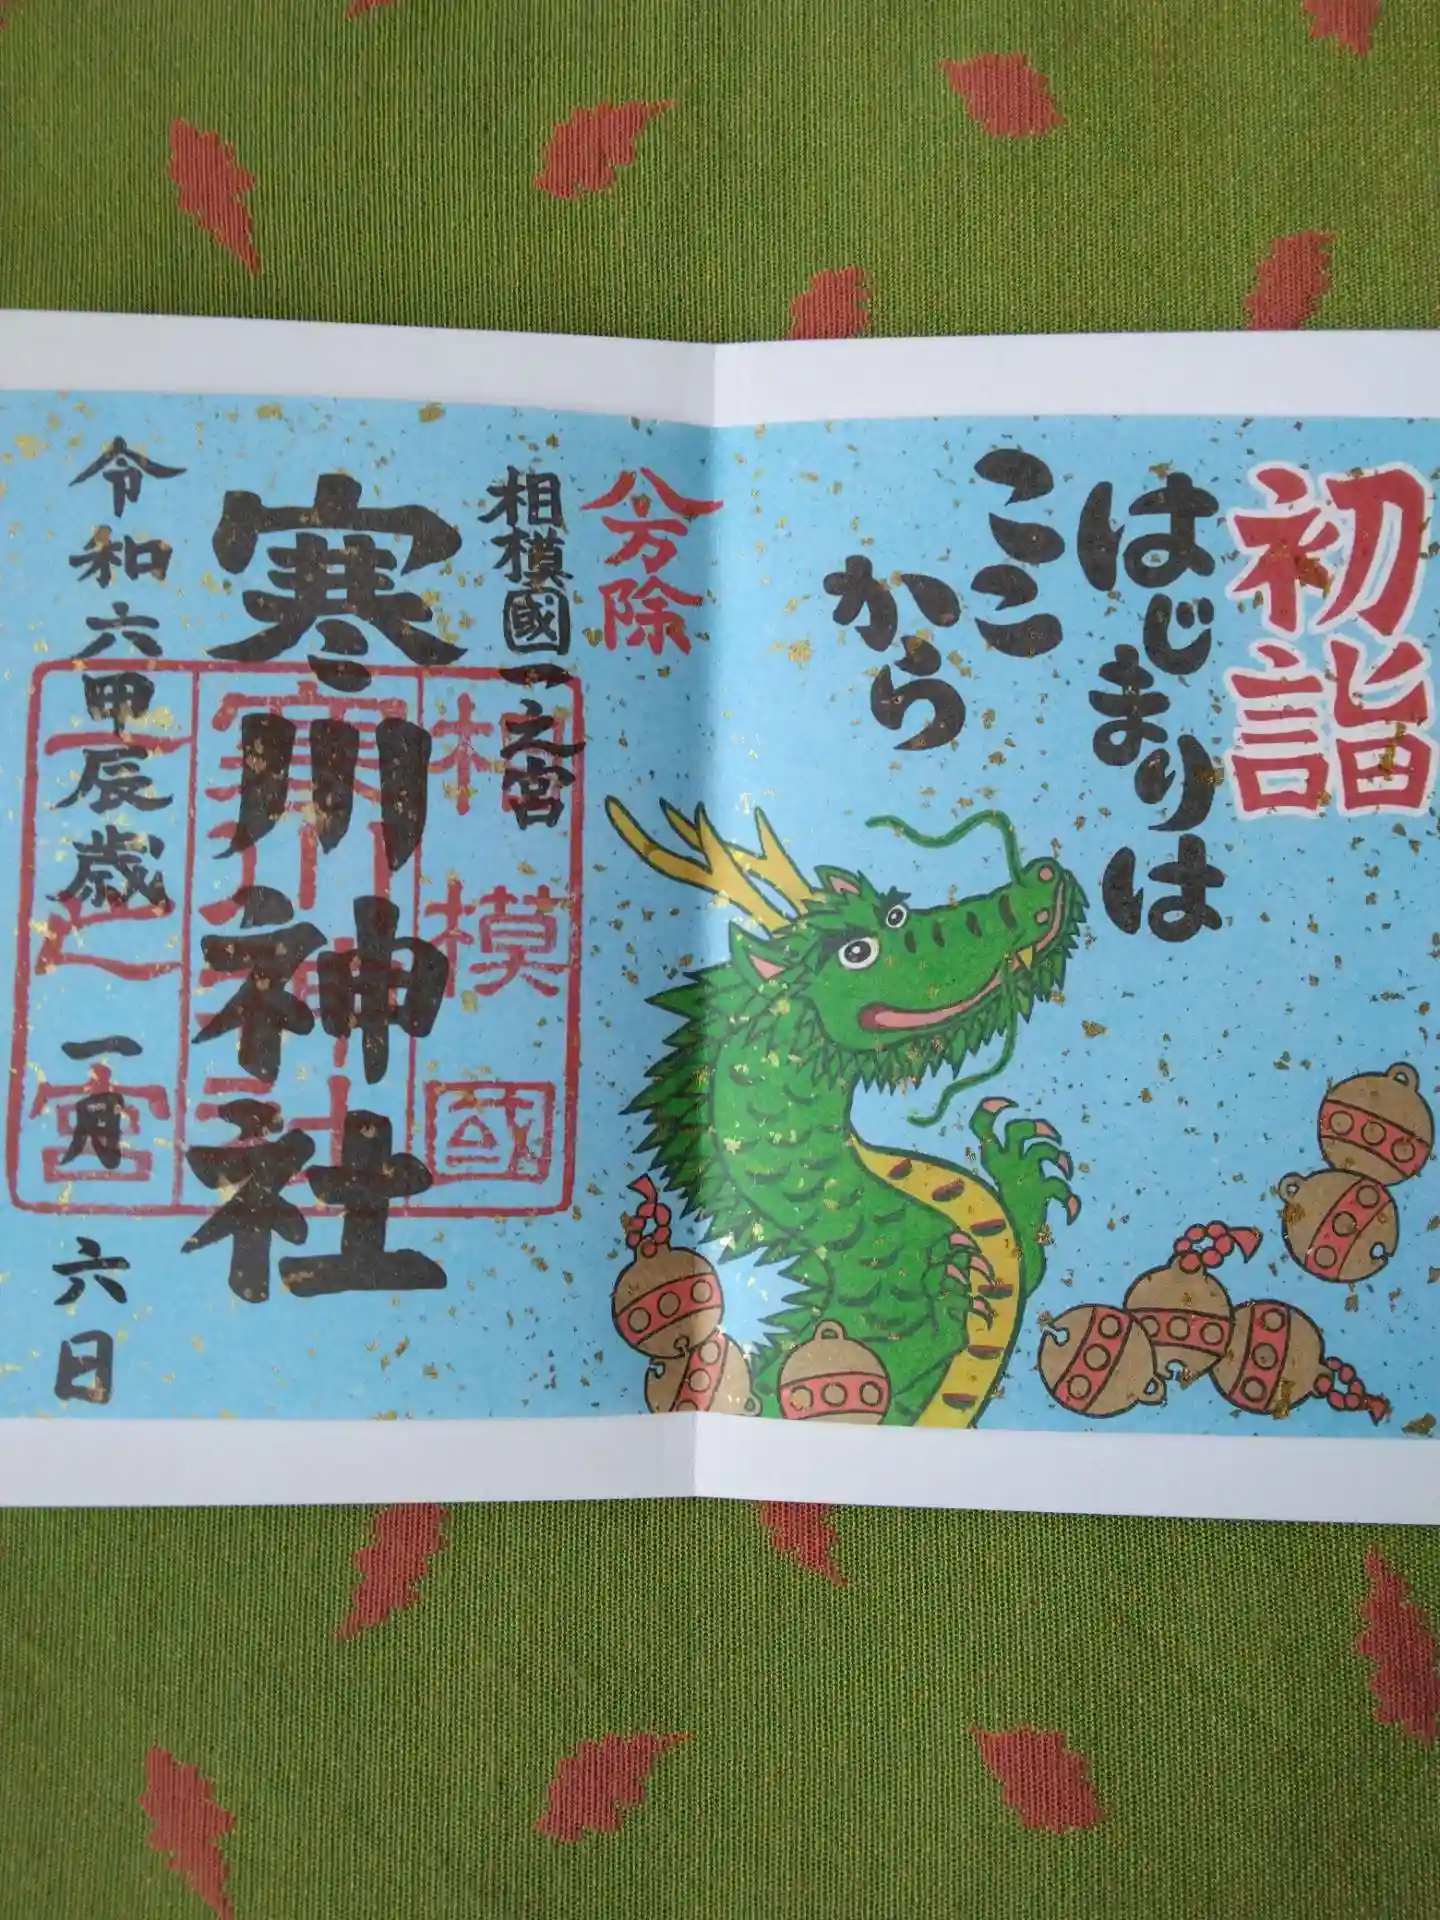 初詣
はじまりは
ここ
から
八方除
相模國一之宮
寒川神社
令和六甲辰歳 一月 六日
相模國
寒川神社
一之宮